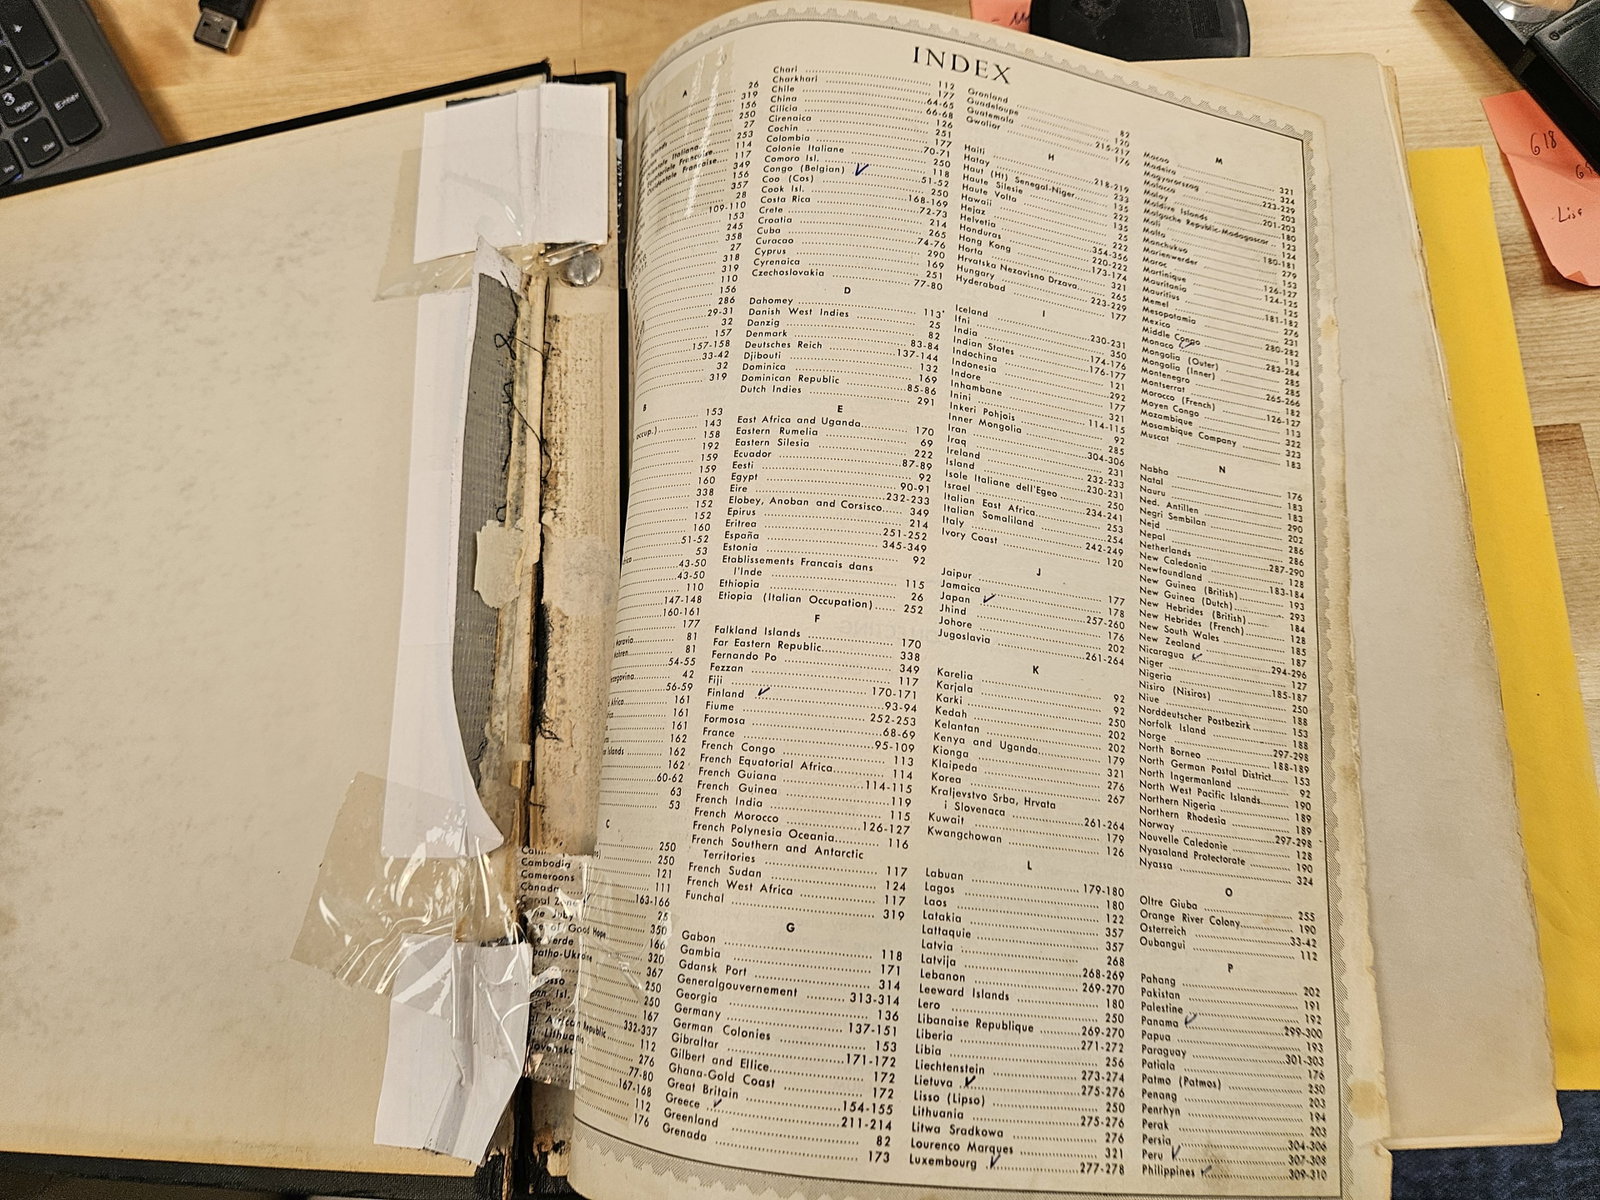 INDEX
A
26
319
156
250
27
253
114
117
349
156
357
28
109-110
153
245
358
27
318
319
110
156
286
29-31
32
157
157-158
33-42
32
319
B
153
143
158
192
159
159
160
338
152
152
160
51-52
53
43-50
43-50
110
147-148
160-161
177
81
81
54-55
42
56-59
161
161
161
162
162
162
60-62
63
53
C
250
Cambodia 250
Cameroons 121
Canada 111
Canal Zone 163-166
25
of Good Hope 350
Verde 166
320
367
250
250
167
332-337
112
276
77-80
167-168
112
176
Chari 112
Charkhari 177
Chile 64-65
China 66-68
Cilicia 126
Cirenaica 251
Cochin 177
Colombia 70-71
Colonie Italiane 250
Comoro Isl. 118
Congo (Belgian) 51-52
Coo (Cos) 250
Cook Isl. 168-169
Costa Rica 72-73
Crete 214
Croatia 265
Cuba 74-76
Curacao 290
Cyprus 169
Cyrenaica 251
Czechoslovakia 77-80
D
Dahomey 113
Danish West Indies 25
Danzig 82
Denmark 83-84
Deutsches Reich 137-144
Djibouti 132
Dominica 169
Dominican Republic 85-86
Dutch Indies 291
E
East Africa and Uganda 170
Eastern Rumelia 69
Eastern Silesia 222
Ecuador 87-89
Eesti 92
Egypt 90-91
Eire 232-233
Elobey, Anoban and Corsisco 349
Epirus 214
Eritrea 251-252
España 345-349
Estonia 92
Etablissements Francais dans
l'Inde 115
Ethiopia 26
Etiopia (Italian Occupation) 252
F
Falkland Islands 170
Far Eastern Republic 338
Fernando Po 349
Fezzan 117
Fiji 170-171
Finland 93-94
Fiume 252-253
Formosa 68-69
France 95-109
French Congo 113
French Equatorial Africa 114
French Guiana 114-115
French Guinea 119
French India 115
French Morocco 126-127
French Polynesia Oceania 116
French Southern and Antarctic
Territories 117
French Sudan 124
French West Africa 117
Funchal 319
G
Gabon 118
Gambia 171
Gdansk Port 314
Generalgouvernement 313-314
Georgia 136
Germany 137-151
German Colonies 153
Gibraltar 171-172
Gilbert and Ellice 172
Ghana-Gold Coast 172
Great Britain 154-155
Greece 211-214
Greenland 82
Grenada 173
Gronland 82
Guadeloupe 120
Guatemala 215-217
Gwalior 176
H
Haiti 218-219
Hatay 233
Haut (Ht) Senegal-Niger 125
Haute Silesie 222
Haute Volta 135
Hawaii 25
Hejaz 222
Helvetia 354-356
Honduras 220-222
Hong Kong 173-174
Horta 321
Hrvatska Nezavisno Drzava 265
Hungary 223-229
Hyderabad 177
I
Iceland 230-231
Ifni 350
India 174-176
Indian States 176-177
Indochina 121
Indonesia 292
Indore 177
Inhambane 321
Inini 114-115
Inkeri Pohjois 92
Inner Mongolia 285
Iran 304-306
Iraq 231
Ireland 232-233
Island 230-231
Isole Italiane dell'Egeo 250
Israel 234-241
Italian East Africa 253
Italian Somaliland 254
Italy 242-249
Ivory Coast 120
J
Jaipur 177
Jamaica 178
Japan 257-260
Jhind 176
Johore 202
Jugoslavia 261-264
K
Karelia 92
Karjala 92
Karki 250
Kedah 202
Kelantan 202
Kenya and Uganda 179
Kionga 321
Klaipeda 276
Korea 267
Kraljevstvo Srba, Hrvata
i Slovenaca 261-264
Kuwait 179
Kwangchowan 126
L
Labuan 179-180
Lagos 180
Laos 122
Latakia 357
Lattaquie 357
Latvia 268
Latvija 268-269
Lebanon 269-270
Leeward Islands 180
Lero 250
Libanaise Republique 269-270
Liberia 271-272
Libia 256
Liechtenstein 273-274
Lietuva 275-276
Lisso (Lipso) 250
Lithuania 275-276
Litwa Sradkowa 276
Lourenco Marques 321
Luxembourg 277-278
M
Macao 321
Madeira 324
Magyarorszag 223-229
Malacca 203
Malay 201-203
Maldive Islands 180
Malgache Republic-Madagascar 123
Mali 124
Malta 180-181
Manchukuo 279
Marienwerder 153
Maroc 126-127
Martinique 124-125
Mauritania 125
Mauritius 181-182
Memel 276
Mesopotamia 231
Mexico 280-282
Middle Congo 113
Monaco 283-284
Mongolia (Outer) 285
Mongolia (Inner) 285
Montenegro 265-266
Montserrat 182
Morocco (French) 126-127
Moyen Congo 113
Mozambique 322
Mosambique Company 323
Muscat 183
N
Nabha 176
Natal 183
Nauru 183
Ned. Antillen 290
Negri Sembilan 202
Nejd 286
Nepal 286
Netherlands 287-290
New Caledonia 128
Newfoundland 183-184
New Guinea (British) 193
New Guinea (Dutch) 293
New Hebrides (British) 184
New Hebrides (French) 128
New South Wales 185
New Zealand 187
Nicaragua 294-296
Niger 127
Nigeria 185-187
Nisiro (Nisiros) 250
Niue 188
Norddeutscher Postbezirk 153
Norfolk Island 188
Norge 297-298
North Borneo 188-189
North German Postal District 153
North Ingermanland 92
North West Pacific Islands 190
Northern Nigeria 189
Northern Rhodesia 189
Norway 297-298
Nouvelle Caledonie 128
Nyasaland Protectorate 190
Nyassa 324
O
Oltre Giuba 255
Orange River Colony 190
Osterreich 33-42
Oubangui 112
P
Pahang 202
Pakistan 191
Palestine 192
Panama 299-300
Papua 193
Paraguay 301-303
Patiala 176
Patmo (Patmos) 250
Penang 203
Penrhyn 194
Perak 203
Persia 304-306
Peru 307-308
Philippines 309-310
618
Lise
3